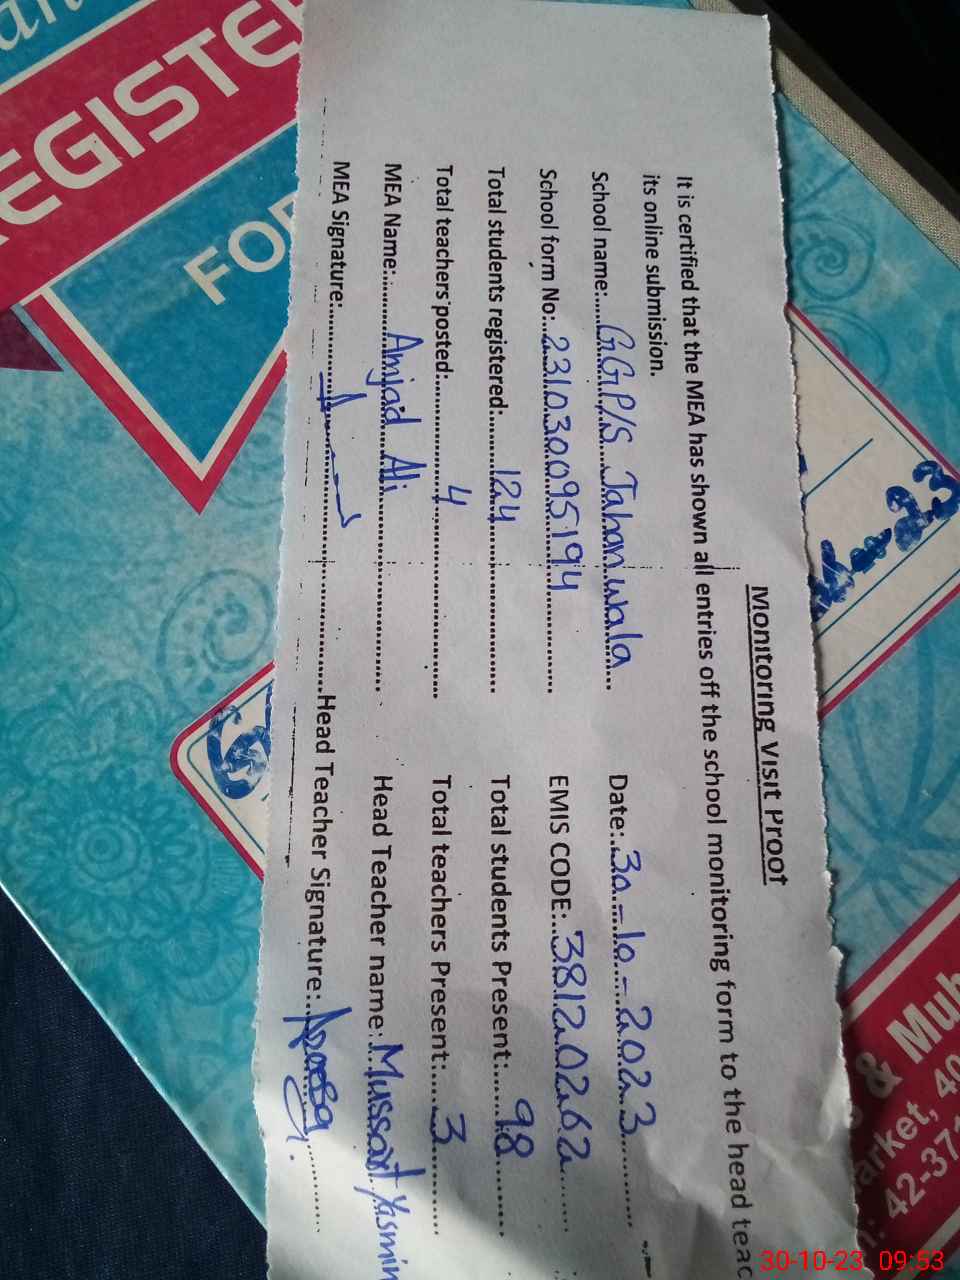 REGISTE
FOR
Monitoring Visit Proof
It is certified that the MEA has shown all entries off the school monitoring form to the head teac
its online submission.
School name:......GGP/S Jahanwala...... Date:..30-10-2023......
School form No:..231030095194...... EMIS CODE:..38120262......
Total students registered:......124...... Total students Present:......98......
Total teachers posted:......4...... Total teachers Present:......3......
MEA Name:......Amjad Ali...... Head Teacher name:..Mussart Yasmin
MEA Signature:...... Head Teacher Signature:......
& Mub
arket, 40
42-37
30-10-23 09:53